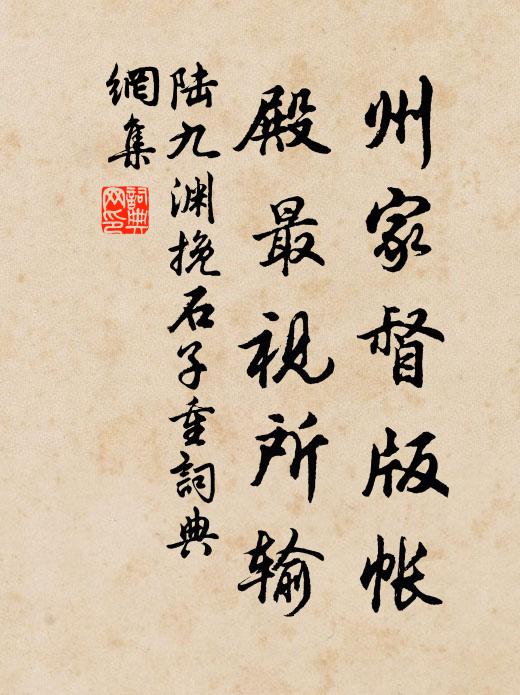 州家督版帐
殿最视所输
陆九渊挽石子重词典
網集
詞典網印